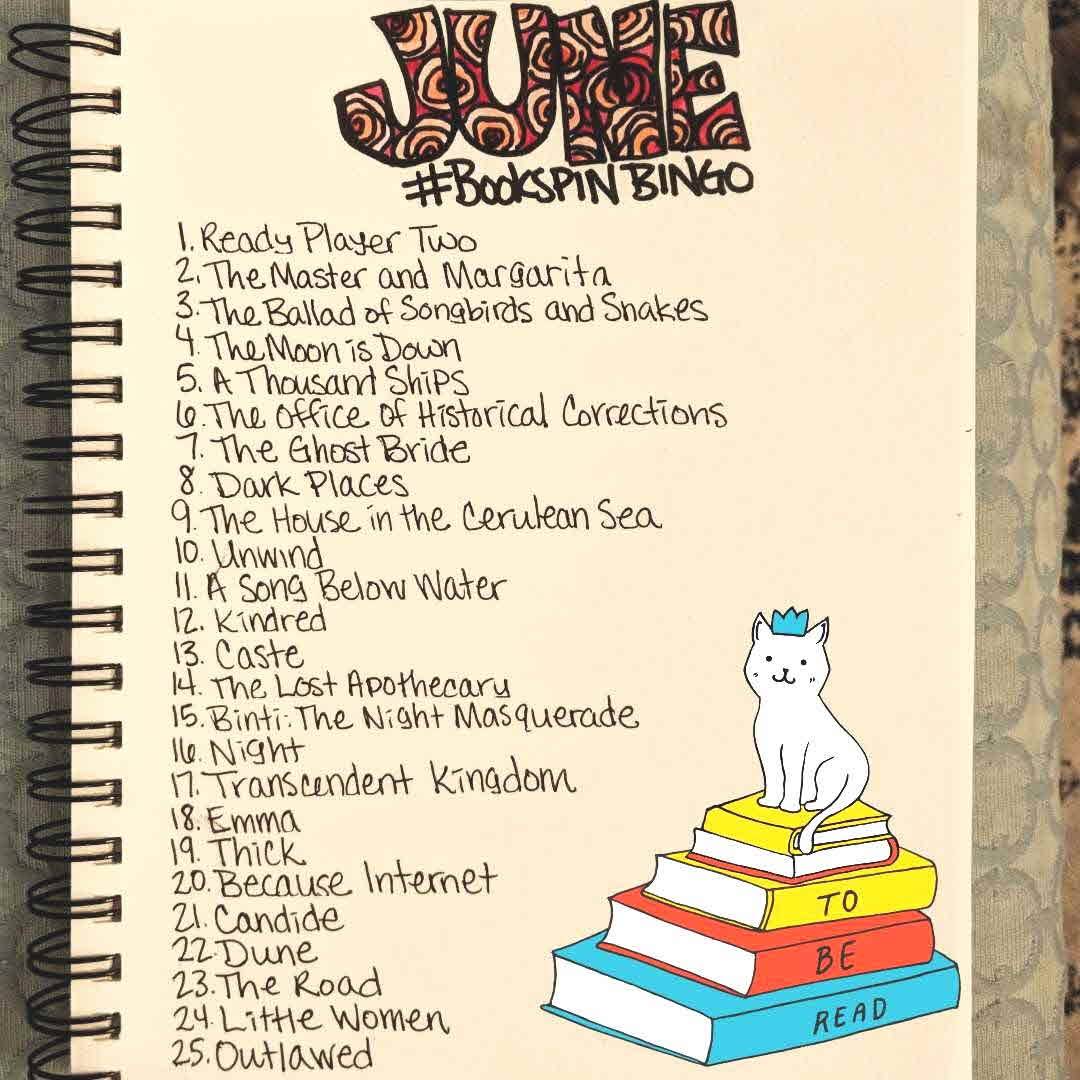 JUNE
#BOOKSPIN BINGO
1. Ready Player Two
2. The Master and Margarita
3. The Ballad of Songbirds and Snakes
4. The Moon is Down
5. A Thousand Ships
6. The Office of Historical Corrections
7. The Ghost Bride
8. Dark Places
9. The House in the Cerulean Sea
10. Unwind
11. A Song Below Water
12. Kindred
13. Caste
14. The Lost Apothecary
15. Binti: The Night Masquerade
16. Night
17. Transcendent Kingdom
18. Emma
19. Thick
20. Because Internet
21. Candide
22. Dune
23. The Road
24. Little Women
25. Outlawed
TO
BE
READ